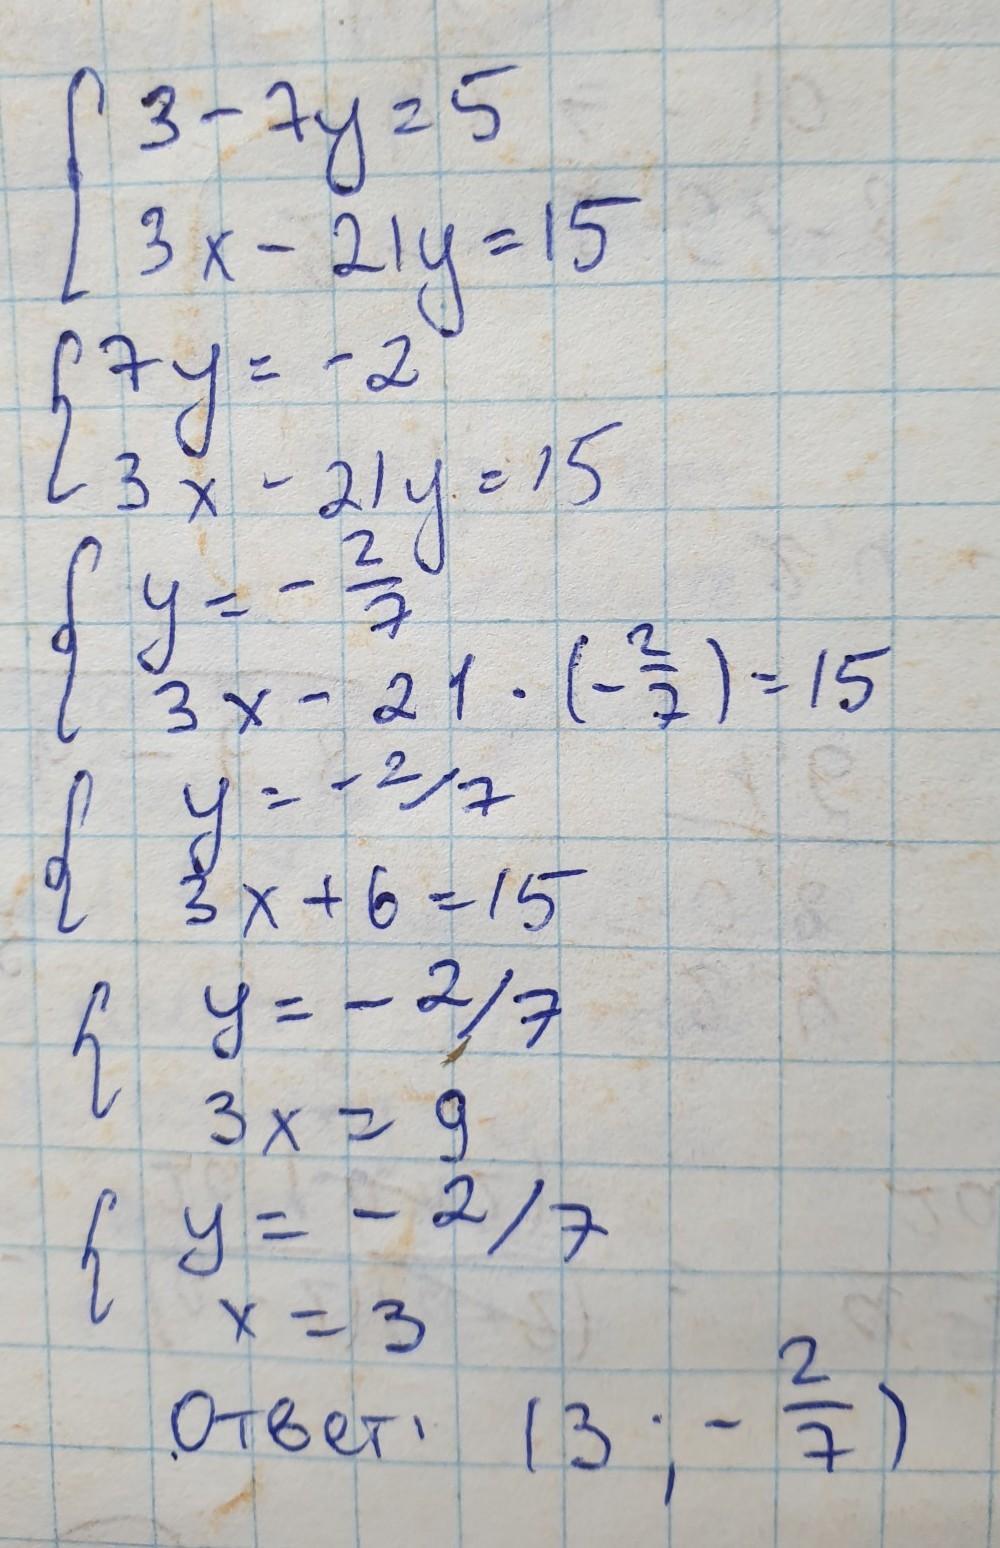 3 - 7y = 5
3x - 21y = 15
7y = -2
3x - 21y = 15
y = - 2/7
3x - 21 · (-2/7) = 15
y = -2/7
3x + 6 = 15
y = - 2/7
3x = 9
y = - 2/7
x = 3
Ответ: (3 ; - 2/7)